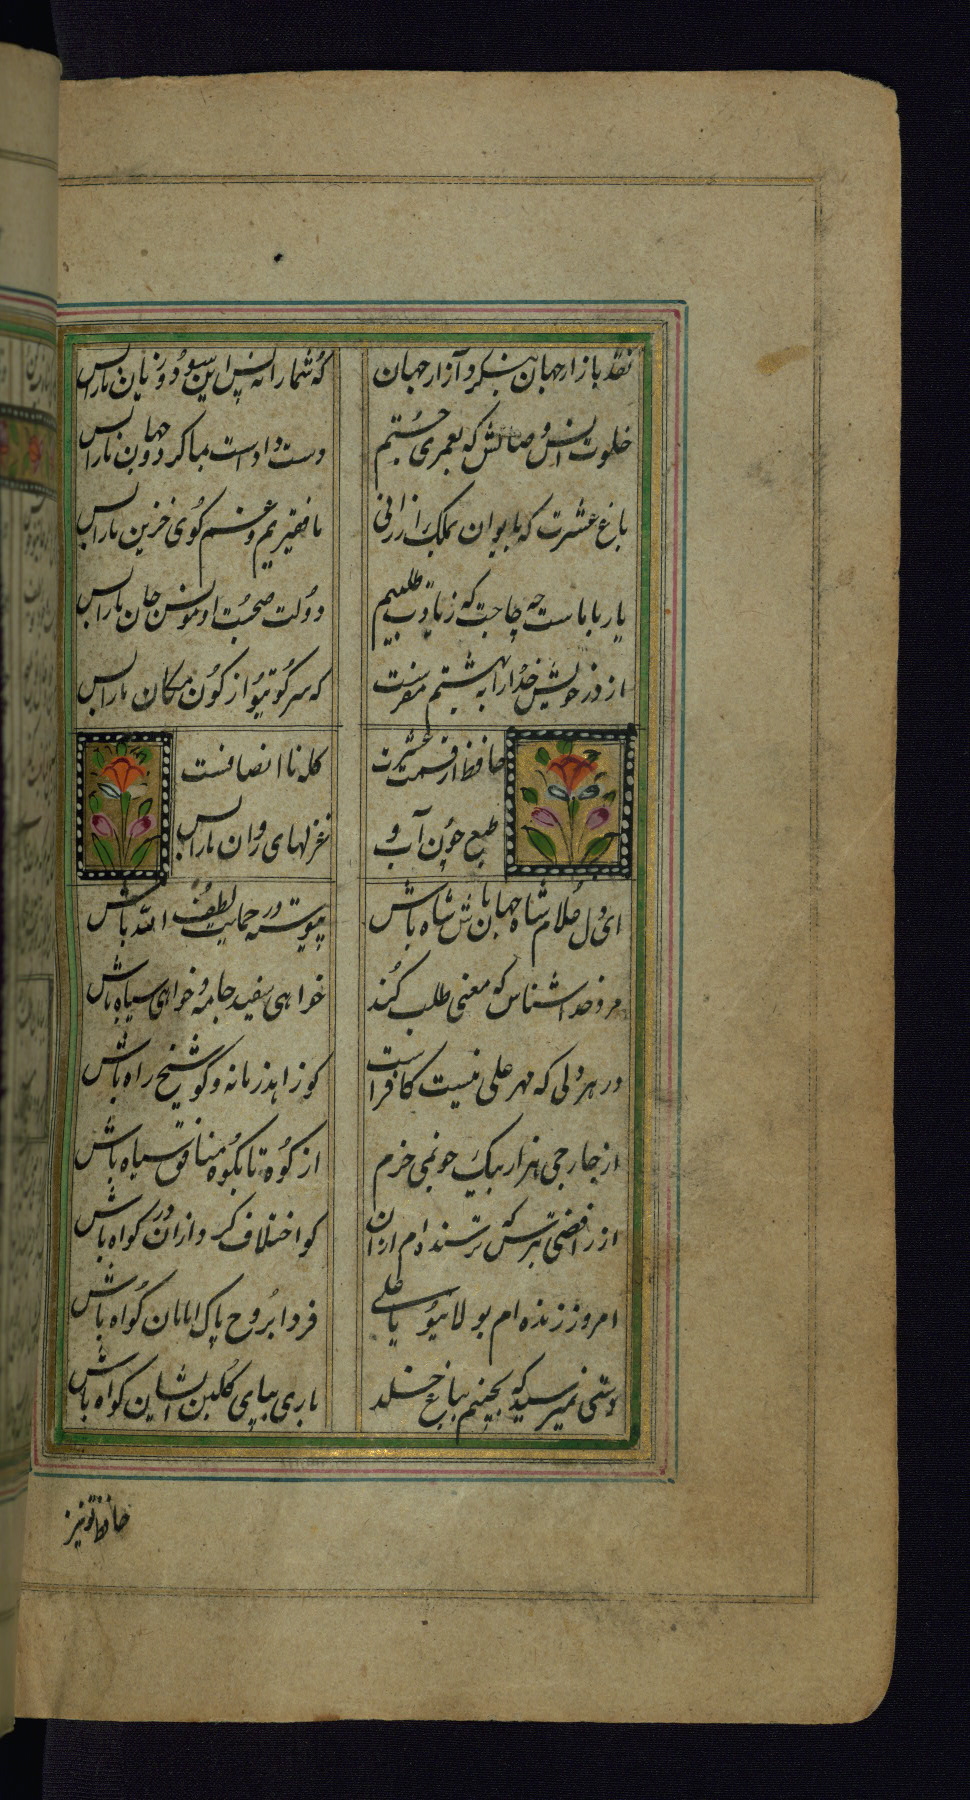 نقد بازار جهان بنگر و آزار جهان
که شما را نه بس این سود و زیان ما را بس
خلوت انس وصالش که بعمری جستم
دست داد است بما کر دو جهان ما را بس
باغ عشرت که بایوان ملک ارزانی
ما فقیریم و غم کوی حزین ما را بس
یار با ماست چه حاجت که زیادت طلبیم
دولت صحبت او مونس جان ما را بس
از در خویش خدا را به بهشتم مفرست
که سر کوی تو از کون و مکان ما را بس
حافظ از قسمت عشرت
کله نا انصافست
طبع چون آب و
غزلهای روان ما را بس
ای دل غلام شاه جهان باش و شاه باش
پیوسته در حمایت لطف الله باش
مرد خدا شناس که معنی طلب کند
خواهی سفید جامه و خواهی سیاه باش
در هر دلی که مهر علی نیست کافر است
کو زاهد زمانه و کو شیخ راه باش
از خارجی هزار بیک جو نمی خرم
از کوه تا بکوه منافق سپاه باش
از رافضی که ترسنده ام ازان
کو اختلاف کر و ازان در کواه باش
امروز زنده ام بولای تو یا علی
فردا بروح پاک امامان کواه باش
دستی نمیرسد که بچینم بباغ خلد
باری بپای کلبن ایشان کواه باش
حافظ تو نیز